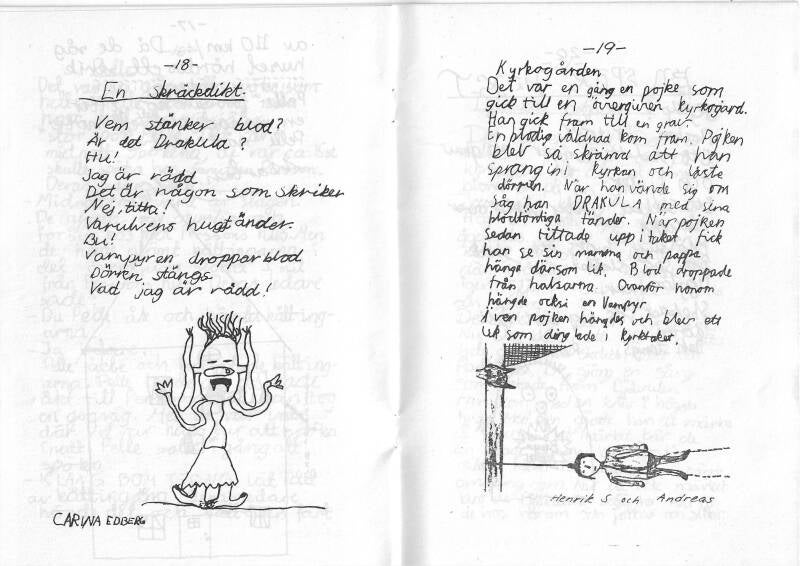 -18-
En skräckdikt.
Vem stänker blod?
Är det Drakula?
Hu!
Jag är rädd
Det är någon som skriker
Nej, titta!
Varulvens huggtänder.
Bu!
Vampyren droppar blod
Dörren stängs
Vad jag är rädd!
CARINA EDBERG
-19-
Kyrkogården
Det var en gång en pojke som
gick till en övergiven kyrkogård.
Han gick fram till en grav.
En blodig vålnad kom fram. Pojken
blev så skrämd att han
sprang in i kyrkan och låste
dörren. När han vände sig om
såg han DRAKULA med sina
blodtörstiga tänder. När pojken
sedan tittade upp i taket fick
han se sin mamma och pappa
hänga där som lik. Blod droppade
från halsarna. Ovanför honom
hängde också en Vampyr
Även pojken hängdes och blev ett
lik som dinglade i kyrktaket.
Henrik S och Andreas